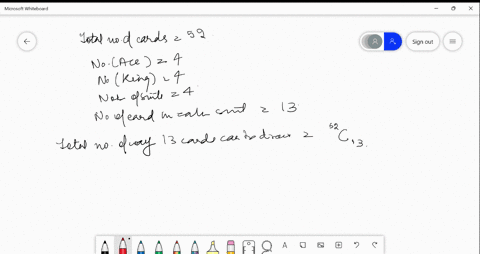 Microsoft Whiteboard
Sign out
Total no. of cards = 52.
No. (Ace) = 4
No (King) = 4
No. of suits = 4
No of card in each suit = 13
Total no. of way 13 cards can be drawn = ⁵²C₁₃.